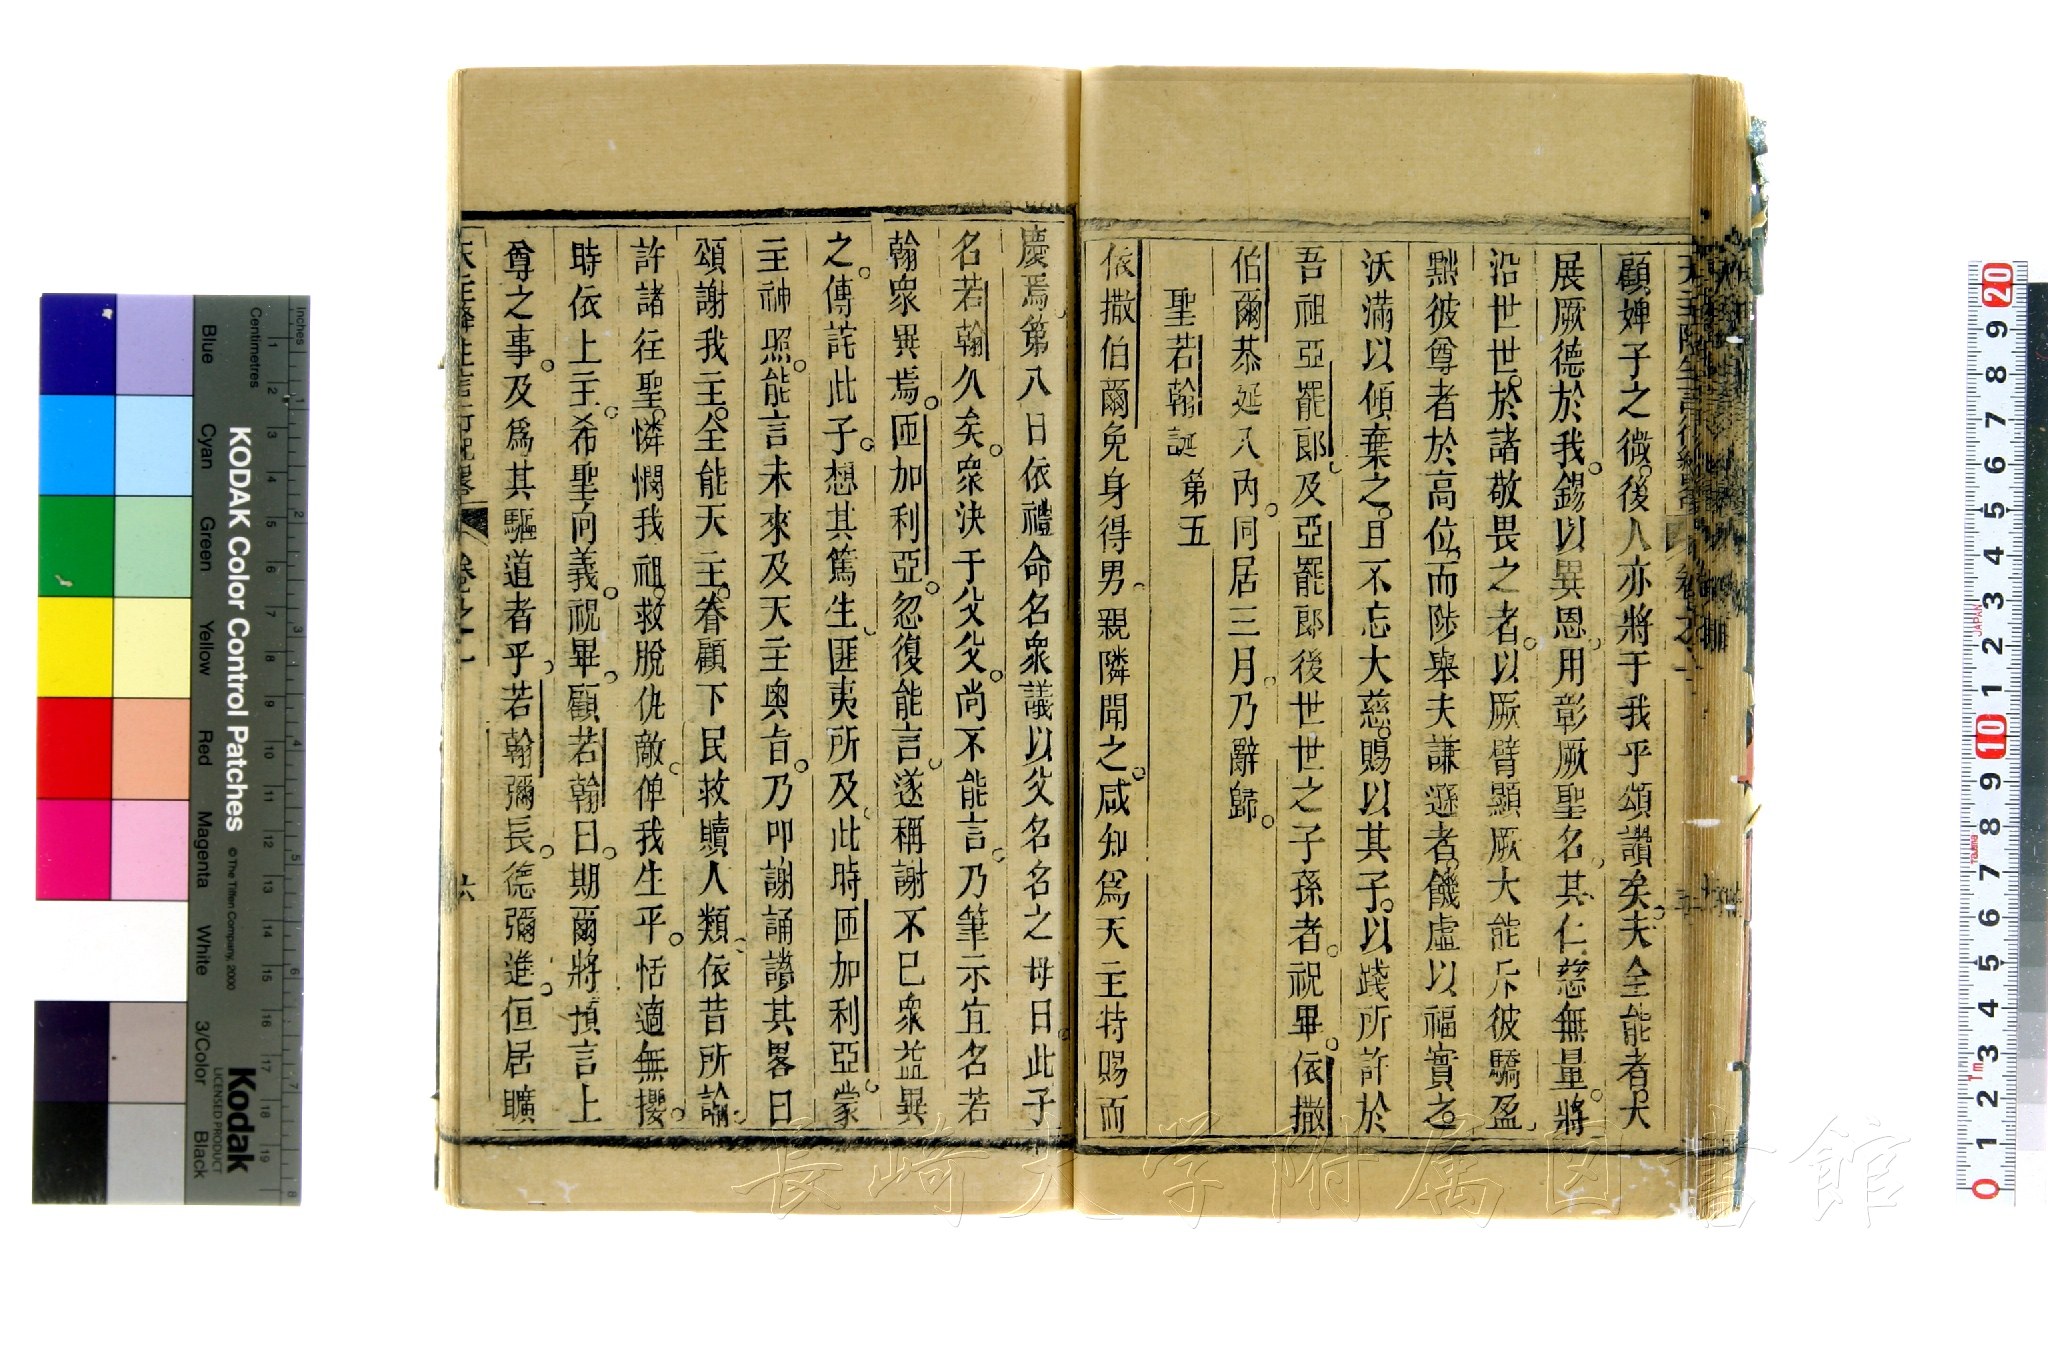 顧婢子之微。後人亦將于我乎頌讚矣。夫全能者。大
展厥德於我。錫以異恩。用彰厥聖名。其仁慈無量。將
沿世世。於諸敬畏之者。以厥臂顯厥大能。斥彼驕盈。
黜彼尊者於高位。而陟舉夫謙遜者。饑虛以福實之。
沃滿以傾棄之。且不忘大慈。賜以其子。以踐所許於
吾祖亞罷郎。及亞罷郎後世世之子孫者。祝畢。依撒
伯爾恭延入內。同居三月。乃辭歸。
聖若翰誕 第五
依撒伯爾免身得男。親隣聞之。咸知為天主特賜而
慶焉。第八日依禮命名。眾議以父名名之。母曰。此子
名若翰久矣。眾決于父。父尚不能言。乃筆示宜名若
翰。眾異焉。匝加利亞。忽復能言。遂稱謝不已。眾益異
之。傳詫此子。想其篤生。匪夷所及。此時匝加利亞。蒙
主神照。能言未來及天主奧旨。乃叩謝誦謝其畧曰
頌謝我主。全能天主。眷顧下民。救贖人類。依昔所諭。
許諸往聖。憐憫我祖。救脫仇敵。俾我生平。恬適無擾。
時依上主。希聖向義。祝畢。顧若翰曰。期爾將預言上
尊之事。及為其驅道者乎。若翰彌長。德彌進。但居曠
天主降生言行紀畧 卷之一 六
KODAK Color Control Patches
© The Tiffen Company, 2000
Kodak
LICENSED PRODUCT
Inches
Centimetres
Blue
Cyan
Green
Yellow
Red
Magenta
White
3/Color
Black
長崎大学附属図書館
JAPAN